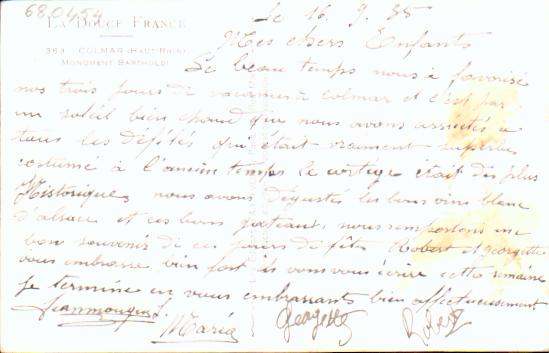 680454
LA DOUCE FRANCE
363 - COLMAR (HAUT-RHIN)
MONUMENT BARTHOLDI
Le 16. 9. 35
Mes chers Enfants
Le beau temps nous à favorisé
nos trois jours de à Colmar et c'est par
un soleil bien chaud que nous avons assistés a
tous les défilés qui était vraiment superbe
costumé à l'ancien temps le cortège était des plus
Historique, nous avons dégustés les bons vins blanc
d'alsace et ces bons gateaux, nous remportons un
bon souvenir de ces jours de fête Robert et georgette
vous embrasse bien fort ils vont vous écrire cette semaine
je termine en vous embrassants bien affectueusement
Maria Georgette Robert